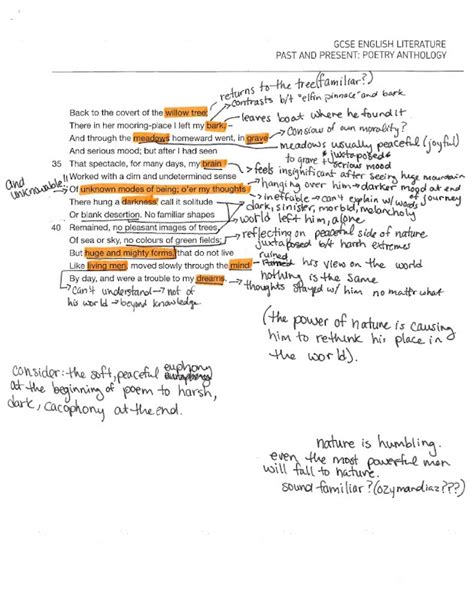 GCSE ENGLISH LITERATURE
PAST AND PRESENT: POETRY ANTHOLOGY
returns to the tree (familiar?)
contrasts b/t "elfin pinnace" and bark
Back to the covert of the willow tree;
There in her mooring-place I left my bark,–
leaves boat where he found it
Conscious of own morality?
And through the meadows homeward went, in grave
meadows usually peaceful (joyful)
to grave + juxtaposed serious mood
And serious mood; but after I had seen
35 That spectacle, for many days, my brain
feels insignificant after seeing huge mountain
Worked with a dim and undetermined sense
and unknowable!!
hanging over him → darker mood at end of journey
Of unknown modes of being; o'er my thoughts
ineffable - can't explain w/ words
There hung a darkness, call it solitude
dark, sinister, morbid, melancholy
Or blank desertion. No familiar shapes
world left him alone
40 Remained, no pleasant images of trees,
reflecting on peaceful side of nature
Of sea or sky, no colours of green fields;
juxtaposed b/t harsh extremes
But huge and mighty forms, that do not live
ruined his view on the world
Like living men, moved slowly through the mind
nothing is the same
By day, and were a trouble to my dreams.
thoughts stayed w/ him no matter what
can't understand → not of
his world → beyond knowledge
(the power of nature is causing
him to rethink his place in
the world).
consider: the soft, peaceful euphony
at the beginning of poem to harsh,
dark, cacophony at the end.
nature is humbling.
even the most powerful men
will fall to nature.
sound familiar? (ozymandiaz???)